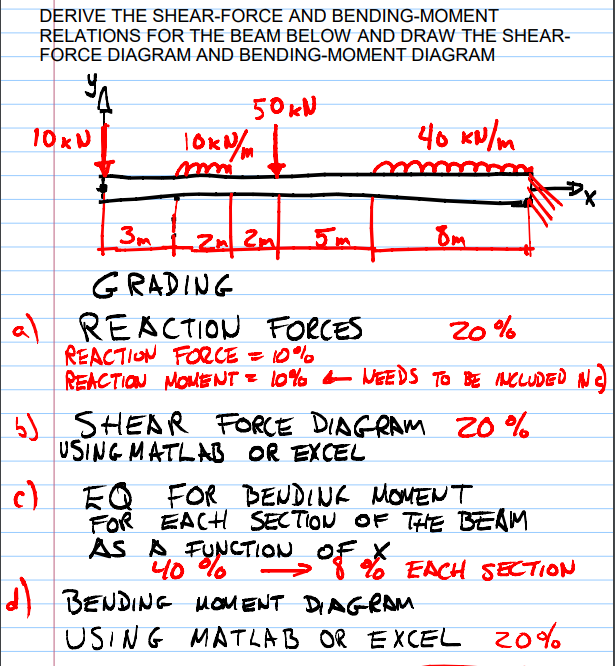 DERIVE THE SHEAR-FORCE AND BENDING-MOMENT
RELATIONS FOR THE BEAM BELOW AND DRAW THE SHEAR-
FORCE DIAGRAM AND BENDING-MOMENT DIAGRAM
y
50 kN
10 kN
10 kN/m
40 kN/m
x
3m 2m 2m 5m 8m
GRADING
a) REACTION FORCES 20%
REACTION FORCE = 10%
REACTION MOMENT = 10% ← NEEDS TO BE INCLUDED IN c)
b) SHEAR FORCE DIAGRAM 20%
USING MATLAB OR EXCEL
c) EQ FOR BENDING MOMENT
FOR EACH SECTION OF THE BEAM
AS A FUNCTION OF X
40% → 8% EACH SECTION
d) BENDING MOMENT DIAGRAM
USING MATLAB OR EXCEL 20%